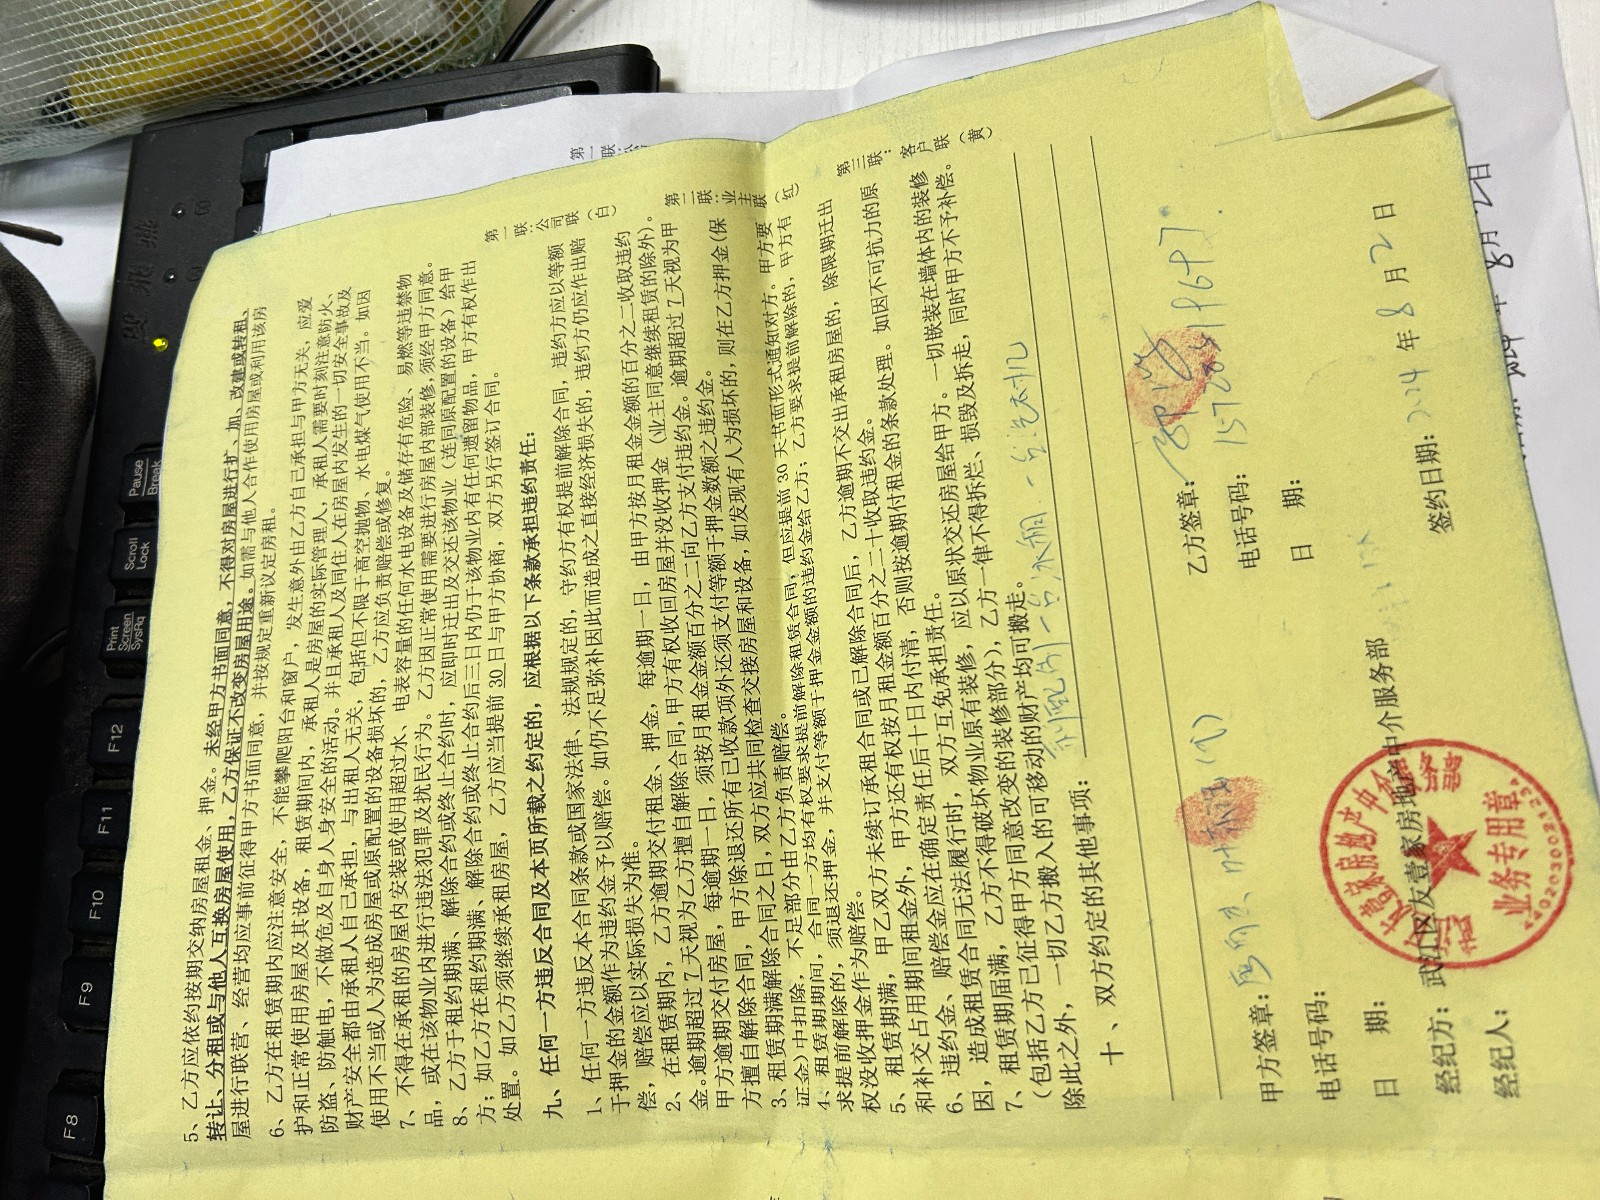 5、乙方应依约按期交纳房屋租金、押金。未经甲方书面同意，不得对房屋进行扩、加、改建或转租、
转让、分租或与他人互换房屋使用，乙方保证不改变房屋用途。如需与他人合作使用房屋或利用该房
屋进行联营、经营均应事前征得甲方书面同意，并按规定重新议定房租。
6、乙方在租赁期内应注意安全，不能攀爬阳台和窗户，发生意外由乙方自己承担与甲方无关，应爱
护和正常使用房屋及其设备，租赁期间内，承租人是房屋的实际管理人，承租人需要时刻注意防火、
防盗、防触电，不做危及自身人身安全的活动。并且承租人及同住人在房屋内发生的一切安全事故及
财产安全都由承租人自己承担，与出租人无关，包括但不限于高空抛物、水电煤气使用不当。如因
使用不当或人为造成房屋或原配置的设备损坏的，乙方应负责赔偿或修复。
7、不得在承租的房屋内安装或使用超过水、电表容量的任何水电设备及储存有危险、易燃等违禁物
品，或在该物业内进行违法犯罪及扰民行为。乙方因正常使用需要进行房屋内部装修，须经甲方同意。
8、乙方于租约期满、解除合约或终止合约时，应即时迁出及交还该物业（连同原配置的设备）给甲
方；如乙方在租约期满、解除合约或终止合约后三日内仍于该物业内有任何遗留物品，甲方有权作出
处置。如乙方须继续承租房屋，乙方应当提前30日与甲方协商，双方另行签订合同。
九、任何一方违反合同及本页所载之约定的，应根据以下条款承担违约责任：
1、任何一方违反本合同条款或国家法律、法规规定的，守约方有权提前解除合同，违约方应以等额
于押金的金额作为违约金予以赔偿。如仍不足弥补因此而造成之直接经济损失的，违约方仍应作出赔
偿，赔偿应以实际损失为准。
2、在租赁期内，乙方逾期交付租金、押金，每逾期一日，由甲方按月租金金额的百分之二收取违约
金。逾期超过7天视为乙方擅自解除合同，甲方有权收回房屋并没收押金（业主同意继续租赁的除外）。
甲方逾期交付房屋，每逾期一日，须按月租金金额百分之二向乙方支付违约金。逾期超过7天视为甲
方擅自解除合同，甲方除退还所有已收款项外还须支付等额于押金数额之违约金。
3、租赁期满解除合同之日，双方应共同检查交接房屋和设备，如发现有人为损坏的，则在乙方押金（保
证金）中扣除，不足部分由乙方负责赔偿。
4、租赁期期间，合同一方均有权要求提前解除租赁合同，但应提前30天书面形式通知对方。甲方要
求提前解除的，须退还押金，并支付等额于押金金额的违约金给乙方；乙方要求提前解除的，甲方有
权没收押金作为赔偿。
5、租赁期满，甲乙双方未续订承租合同或已解除合同后，乙方逾期不交出承租房屋的，除限期迁出
和补交占用期间租金外，甲方还有权按月租金额百分之二十收取违约金。
6、违约金、赔偿金应在确定责任后十日内付清，否则按逾期付租金的条款处理。如因不可抗力的原
因，造成租赁合同无法履行时，双方互免承担责任。
7、租赁期届满，乙方不得破坏物业原有装修，应以原状交还房屋给甲方。一切嵌装在墙体内的装修
（包括乙方已征得甲方同意改变的装修部分），乙方一律不得拆烂、损毁及拆走，同时甲方不予补偿。
除此之外，一切乙方搬入的可移动的财产均可搬走。
十、双方约定的其他事项：
第一联：公司联（白）
第二联：业主联（红）
第三联：客户联（黄）
甲方签章：
电话号码：
日 期：
乙方签章：
电话号码：
日 期：
经纪方：武江区友壹家房地产中介服务部
经纪人：
签约日期：2024年8月2日
业务专用章
8月2日
Pause
Break
Scroll
Lock
Print
Screen
SysRq
F12
F11
F10
F9
F8